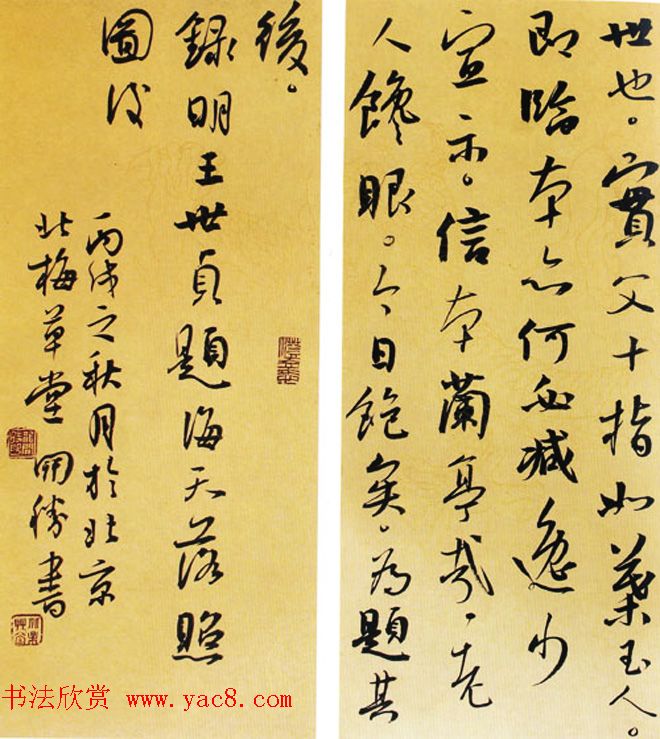 世也。實父十指如葉玉人。
即临本亦何必减逸少
宣示。信本蘭亭哉。老
人饞眼。今日飽矣。為題其
後。
錄明王世貞題海天落照
圖後
丙戌之秋月於北京
北梅草堂 開勝書
书法欣赏 www.yac8.com